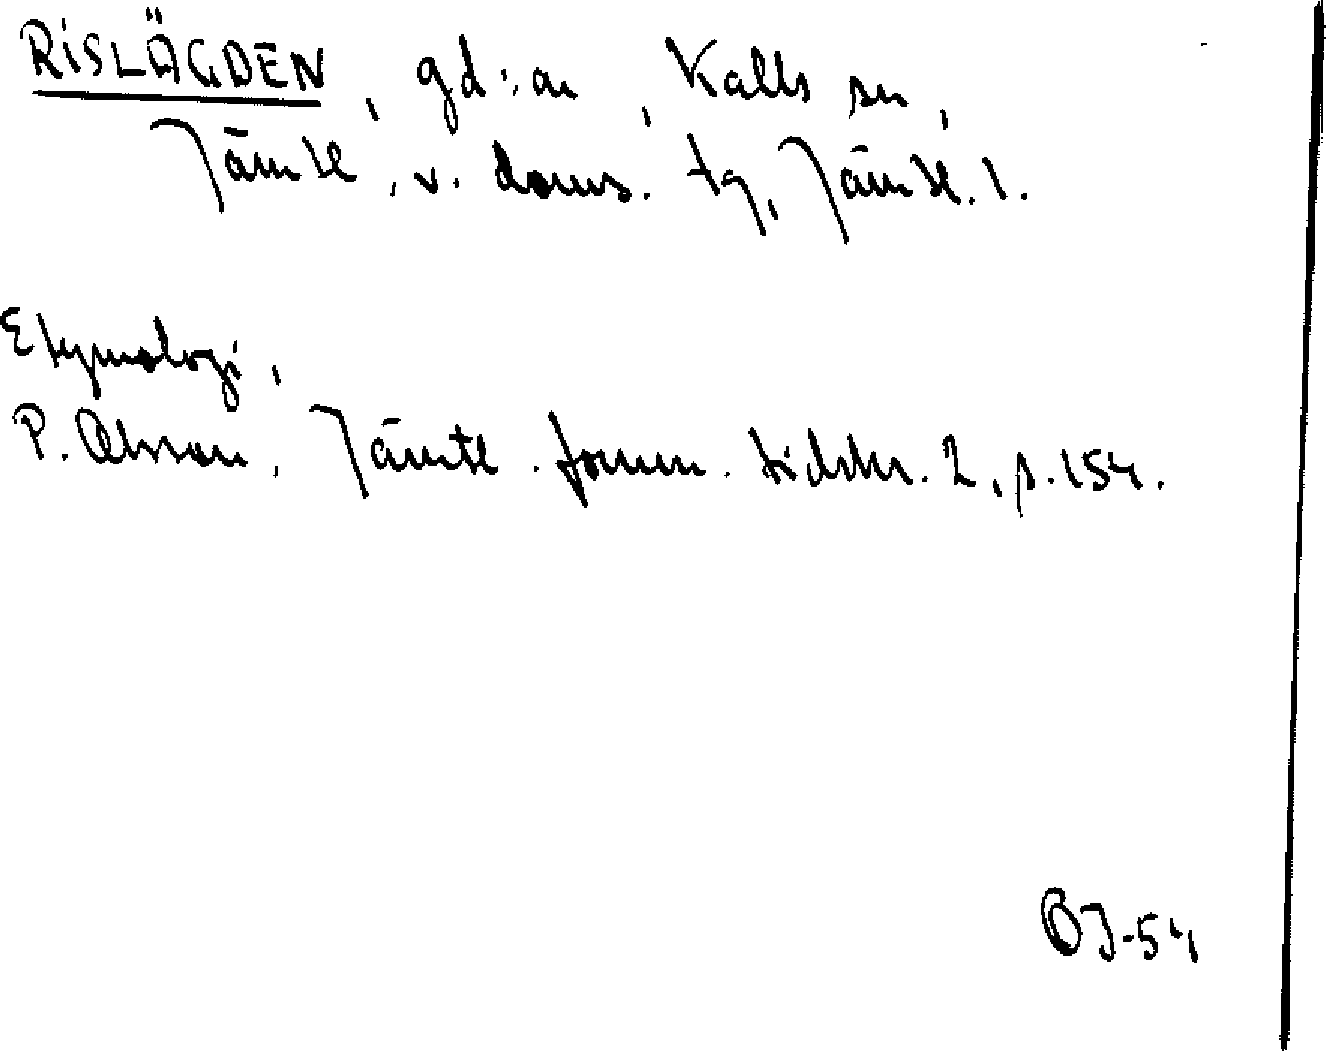 RISLÄGDEN, gd:ar, Kalls sn,
Jämtl, v. doms. tg, Jämtl. l.
Etymologi,
P. Olsson, Jämtl. fornm. tidskr. 2, s. 154.
OJ-54